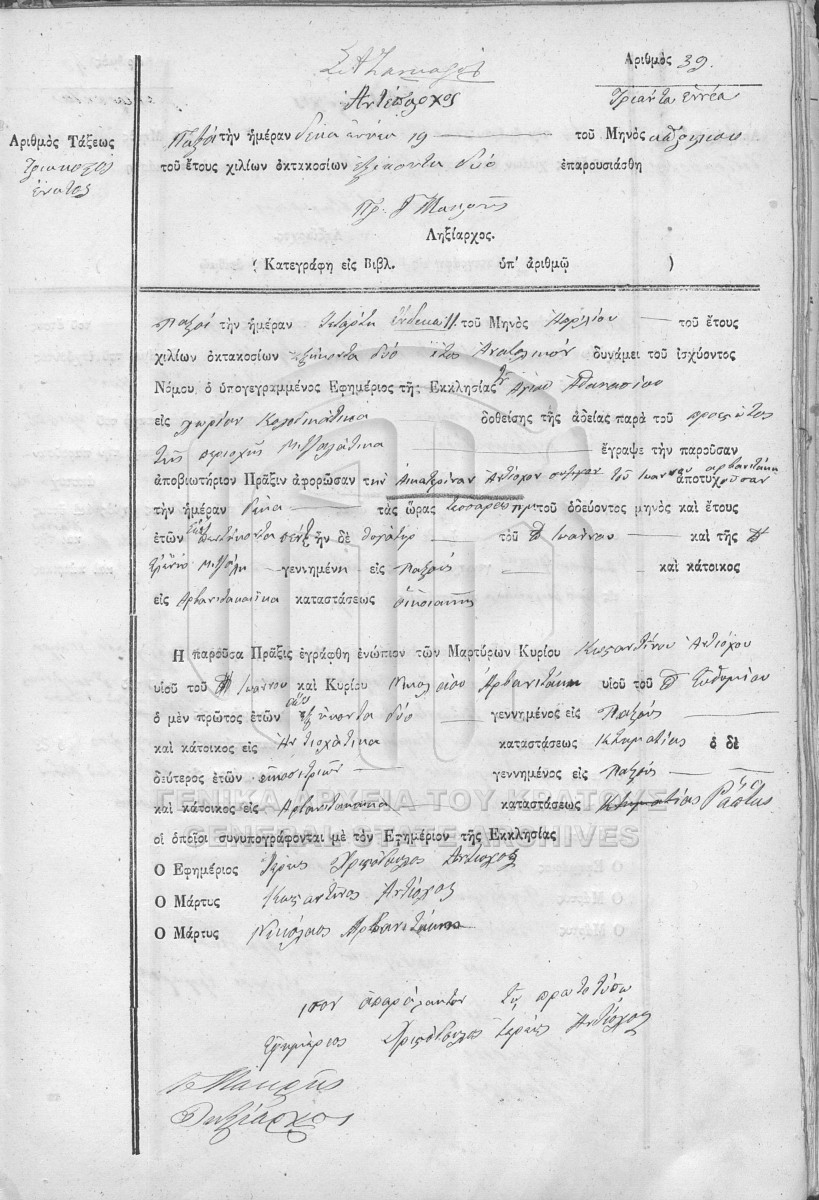 Ἀριθμὸς 39.
Ἀντέπαρχος
τριάντα ἐννέα
Ἀριθμὸς Τάξεως
Παξοὶ τὴν ἡμέραν δέκα ἐννέα 19 τοῦ Μηνὸς ἀπριλίου
τριακοστὸς
ἔνατος
τοῦ ἔτους χιλίων ὀκτακοσίων ἑξήκοντα δύο ἐπαρουσιάσθη
Μακρῆς
Ληξίαρχος.
( Κατεγράφη εἰς Βιβλ. ὑπ' ἀριθμῷ )
Παξοὶ τὴν ἡμέραν τετάρτη ἕνδεκα 11. τοῦ Μηνὸς Ἀπριλίου τοῦ ἔτους
χιλίων ὀκτακοσίων ἑξήκοντα δύο ἔτος Ἀνατολικὸν δυνάμει τοῦ ἰσχύοντος
Νόμου, ὁ ὑπογεγραμμένος Ἐφημέριος τῆς Ἐκκλησίας Ἁγίου Ἀθανασίου
εἰς χωρίον δοθείσης τῆς ἀδείας παρὰ τοῦ προεστῶτος
τῆς περιοχῆς ἔγραψε τὴν παροῦσαν
ἀποβιωτήριον Πρᾶξιν ἀφορῶσαν τὴν Αἰκατερίναν Ἀντίοχον σύζυγον τοῦ Ἰωάννου ἀρβανιτάκη ἀποτυχοῦσαν
τὴν ἡμέραν δέκα τὰς ὥρας τέσσαρες τοῦ ὁδεύοντος μηνὸς καὶ ἔτους
ἐτῶν πέντε ἣν δὲ θυγάτηρ τοῦ Ἰωάννου καὶ τῆς
γεννημένη εἰς Παξοὺς καὶ κάτοικος
εἰς Ἀρβανιτακάτικα καταστάσεως οἰκιακῆς
Ἡ παροῦσα Πρᾶξις ἐγράφθη ἐνώπιον τῶν Μαρτύρων Κυρίου Κωσταντίνου Ἀντιόχου
υἱοῦ τοῦ Ἰωάννου καὶ Κυρίου Νικολάου Ἀρβανιτάκη υἱοῦ τοῦ Εὐθυμίου
ὁ μὲν πρῶτος ἐτῶν ἑξήκοντα δύο γεννημένος εἰς Παξοὺς
καὶ κάτοικος εἰς Ἀντιοχάτικα καταστάσεως Κτηματίας ὁ δὲ
δεύτερος ἐτῶν εἰκοσιτριῶν γεννημένος εἰς Παξοὺς
καὶ κάτοικος εἰς Ἀρβανιτακάτικα καταστάσεως Κτηματίας Ράπτης
οἱ ὁποῖοι συνυπογράφονται μὲ τὸν Ἐφημέριον τῆς Ἐκκλησίας
Ὁ Ἐφημέριος Ἱερεὺς Χριστόδουλος Ἀντίοχος
Ὁ Μάρτυς Κωσταντῖνος Ἀντίοχος
Ὁ Μάρτυς Νικόλαος Ἀρβανιτάκης
ἴσον ἀπαράλακτον τῷ πρωτοτύπω
Ἐφημέριος Χριστόδουλος ἱερεὺς Ἀντίοχος
Μακρῆς
Ληξίαρχος
ΓΕΝΙΚΑ ΑΡΧΕΙΑ ΤΟΥ ΚΡΑΤΟΥΣ
GENERAL STATE ARCHIVES